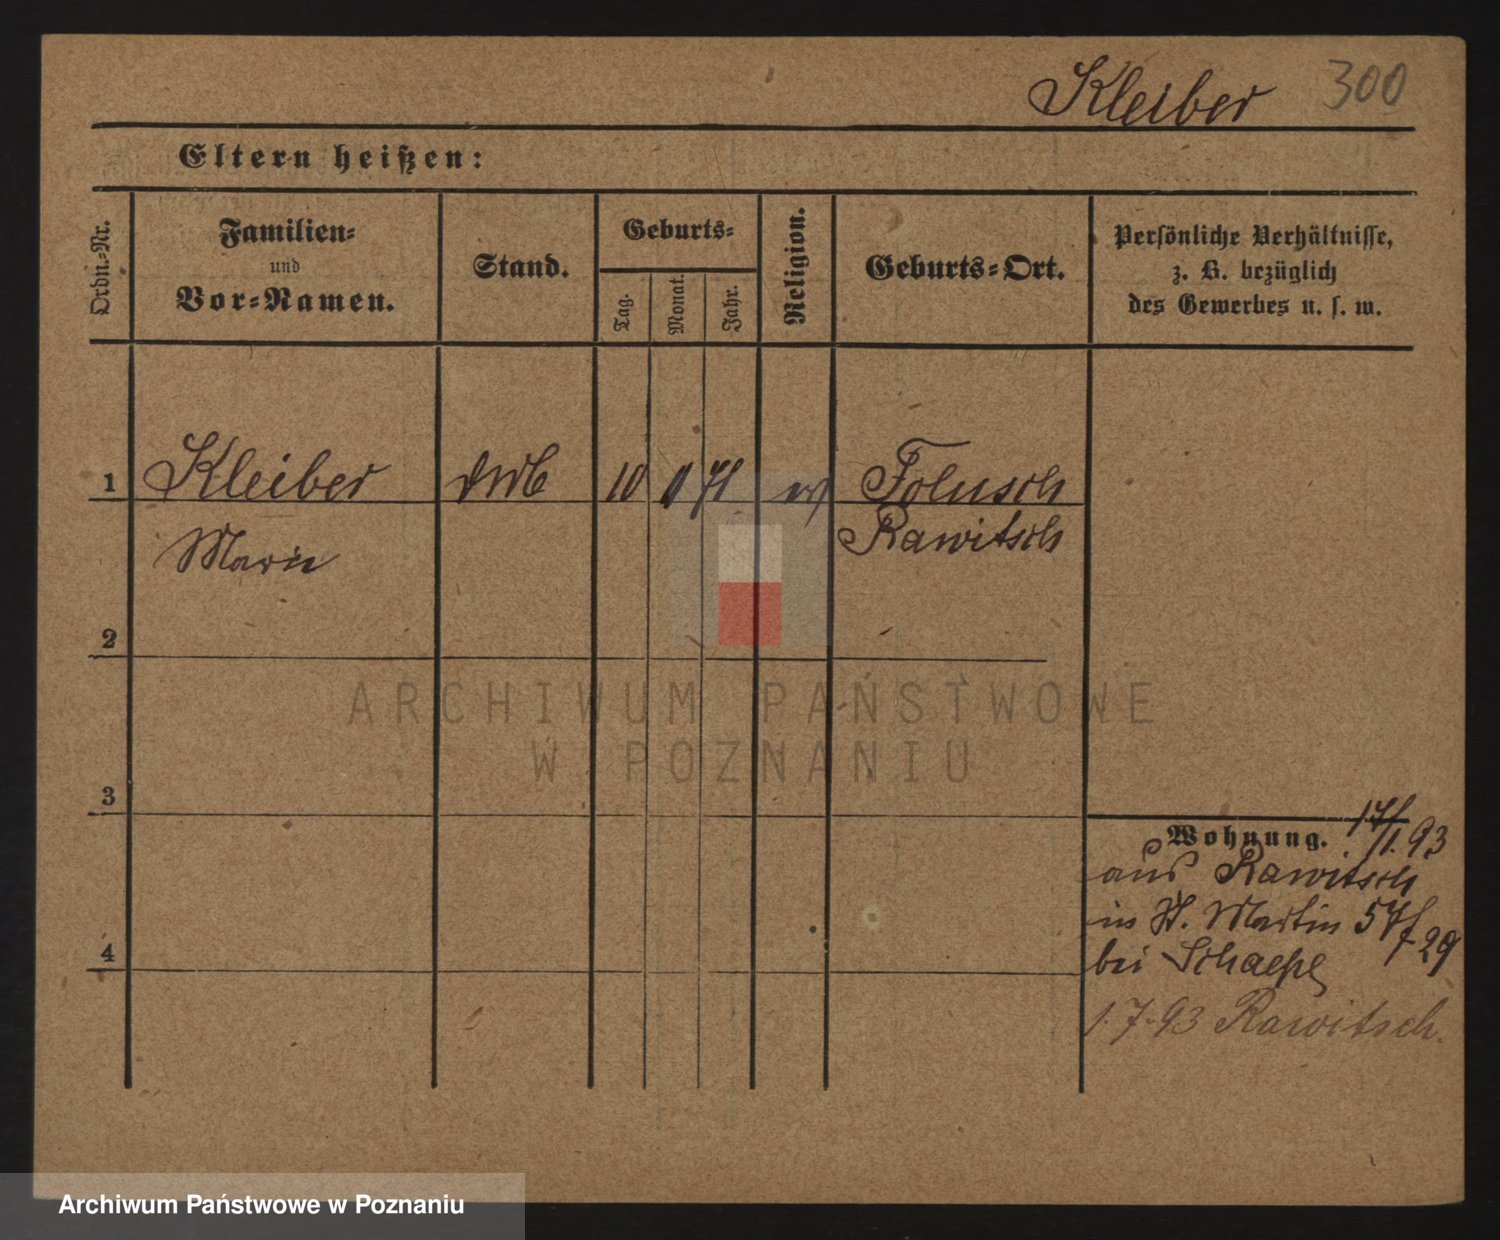 Kleiber 300
Eltern heißen:
Ordn.-Nr.
Familien-
und
Vor-Namen.
Stand.
Geburts-
Tag.
Monat.
Jahr.
Religion.
Geburts-Ort.
Persönliche Verhältnisse,
z. B. bezüglich
des Gewerbes u. s. w.
1 Kleiber 10 71 Folusch
Marie Rawitsch
2
ARCHIWUM PAŃSTWOWE
W POZNANIU
3
Wohnung. 17/1.93
aus Rawitsch
in St. Martin 57
29
4 bei
1.7.93 Rawitsch.
Archiwum Państwowe w Poznaniu